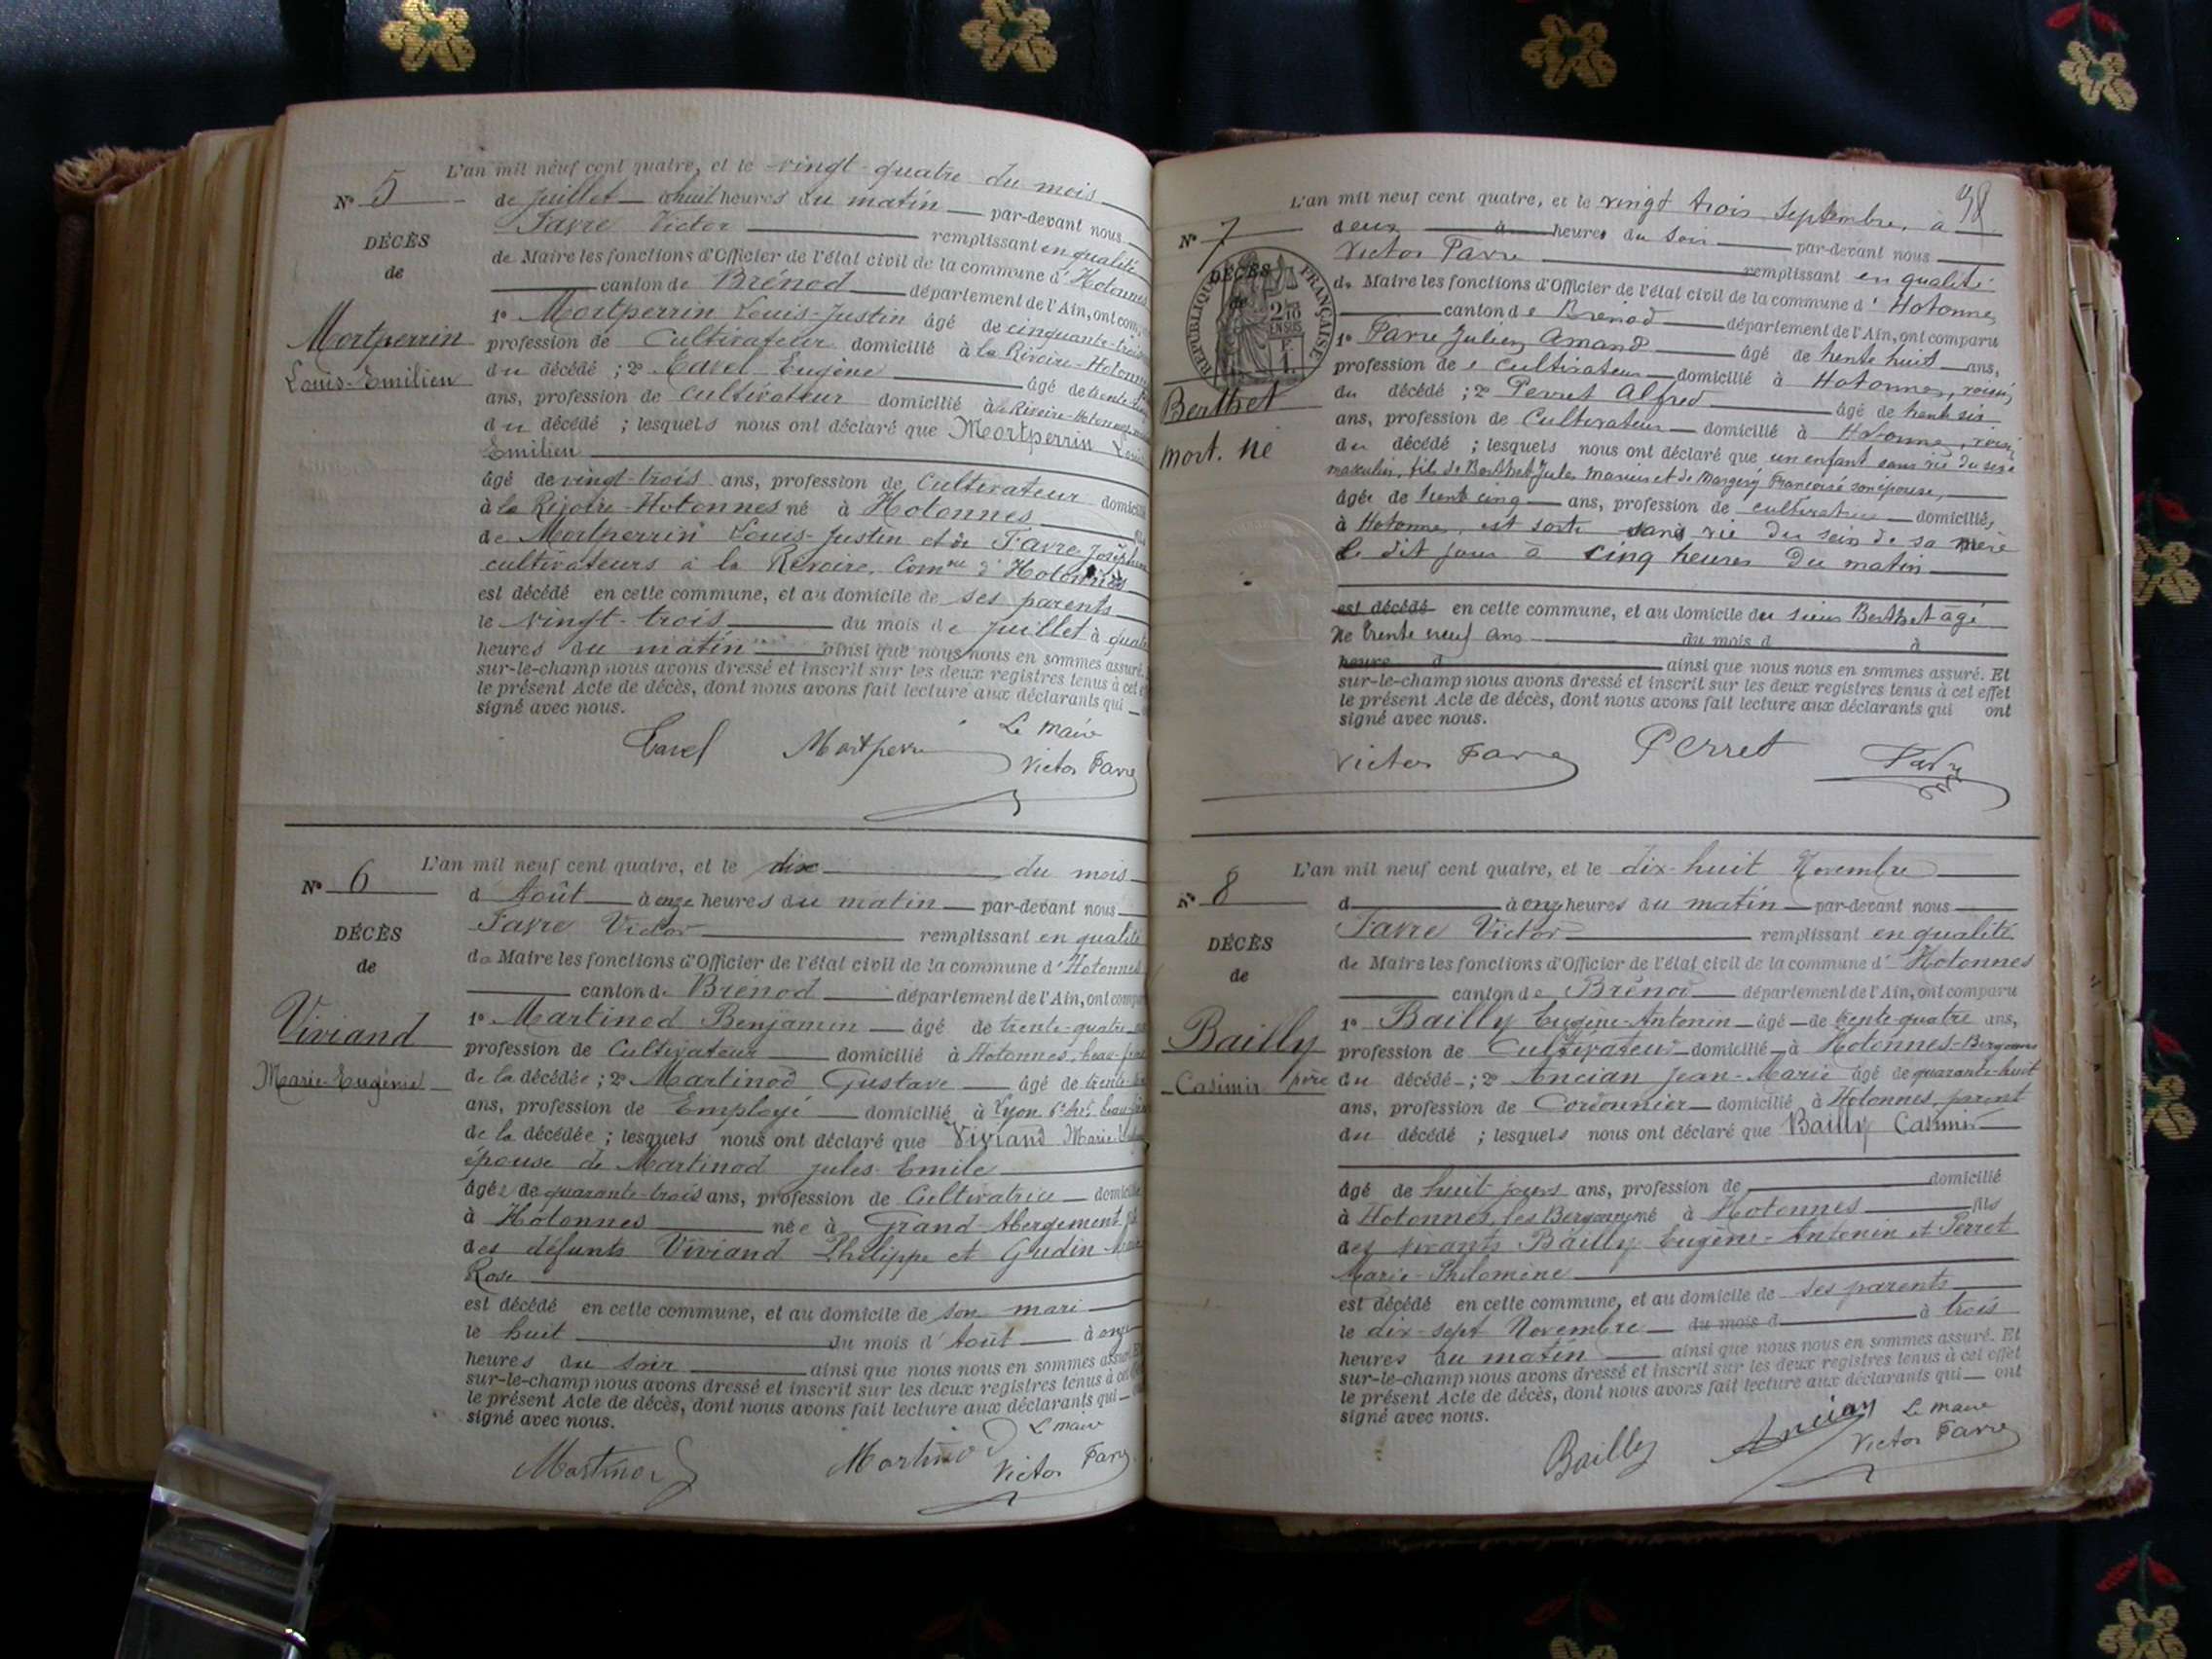 L'an mil neuf cent quatre, et le vingt-quatre du mois
N° 5
de juillet à huit heures du matin par-devant nous
Favre Victor remplissant en qualité
DÉCÈS
de Maire les fonctions d'Officier de l'état civil de la commune d'Hotonnes
de
canton de Brénod département de l'Ain, ont
1° Mortperrin Louis-Justin âgé de cinquante-trois
Mortperrin
profession de Cultivateur domicilié à la Rivoire-Hotonnes
Louis-Emilien
du décédé ; 2° Tavel Eugène âgé de trente
ans, profession de Cultivateur domicilié à la Rivoire-Hotonnes
du décédé ; lesquels nous ont déclaré que Mortperrin Louis
Emilien
âgé de vingt-trois ans, profession de Cultivateur
à la Rivoire-Hotonnes né à Hotonnes
de Mortperrin Louis-Justin et de Favre
cultivateurs à la Rivoire, Comne d'Hotonnes
est décédé en cette commune, et au domicile de ses parents
le vingt-trois du mois de juillet à
heures du matin ainsi que nous nous en sommes assuré.
sur-le-champ nous avons dressé et inscrit sur les deux registres tenus à cet
le présent Acte de décès, dont nous avons fait lecture aux déclarants qui
signé avec nous.
Tavel Mortperrin Le Maire
Victor Favre
L'an mil neuf cent quatre, et le dix du mois
N° 6
d'Août à onze heures du matin par-devant nous
Favre Victor remplissant en qualité
DÉCÈS
de Maire les fonctions d'Officier de l'état civil de la commune d'Hotonnes
de
canton de Brénod département de l'Ain, ont
1° Martinod Benjamin âgé de trente-quatre
Viviand
profession de Cultivateur domicilié à Hotonnes, beau-frère
Marie-Eugénie
de la décédée ; 2° Martinod Gustave âgé de trente
ans, profession de Employé domicilié à Lyon
de la décédée ; lesquels nous ont déclaré que Viviand Marie
épouse de Martinod Jules-Emile
âgée de quarante-trois ans, profession de Cultivatrice
à Hotonnes née à Grand-Abergement
des défunts Viviand Philippe et Gudin
Rose
est décédé en cette commune, et au domicile de son mari
le huit du mois d'Août à onze
heures du soir ainsi que nous nous en sommes assuré
sur-le-champ nous avons dressé et inscrit sur les deux registres tenus à cet
le présent Acte de décès, dont nous avons fait lecture aux déclarants qui
signé avec nous.
Le maire
Martinod Martinod Victor Favre
58
L'an mil neuf cent quatre, et le vingt trois Septembre, à
N° 7
deux à heures du soir par-devant nous
Victor Favre remplissant en qualité
DÉCÈS
de
RÉPUBLIQUE FRANÇAISE
2/10 EN SUS
de Maire les fonctions d'Officier de l'état civil de la commune d'Hotonnes
canton de Brénod département de l'Ain, ont comparu
1° Favre Julien Amand âgé de trente huit ans,
profession de cultivateur domicilié à Hotonnes, voisin
Berthet
du décédé ; 2° Perret Alfred âgé de trente six
ans, profession de Cultivateur domicilié à Hotonnes, voisin
mort. né
du décédé ; lesquels nous ont déclaré que un enfant sans vie du sexe
masculin, fils de Berthet Jules Marius et de Margery Françoise son épouse,
âgée de trente cinq ans, profession de cultivatrice domiciliés
à Hotonnes, est sorti sans vie du sein de sa mère
le dit jour à cinq heures du matin
est décédé en cette commune, et au domicile du sieur Berthet agé
de trente neuf ans du mois d à
heure d ainsi que nous nous en sommes assuré. Et
sur-le-champ nous avons dressé et inscrit sur les deux registres tenus à cet effet
le présent Acte de décès, dont nous avons fait lecture aux déclarants qui ont
signé avec nous.
Victor Favre Perret Favre
L'an mil neuf cent quatre, et le dix-huit Novembre
N° 8
d à onze heures du matin par-devant nous
Favre Victor remplissant en qualité
DÉCÈS
de Maire les fonctions d'Officier de l'état civil de la commune d'Hotonnes
de
canton de Brénod département de l'Ain, ont comparu
1° Bailly Eugène-Antonin âgé de trente-quatre ans,
Bailly
profession de Cultivateur domicilié à Hotonnes-Bergonnes
Casimir
père du décédé ; 2° Ancian Jean-Marie âgé de quarante-huit
ans, profession de Cordonnier domicilié à Hotonnes, parent
du décédé ; lesquels nous ont déclaré que Bailly Casimir
âgé de huit jours ans, profession de domicilié
à Hotonnes, les Bergonnes né à Hotonnes fils
des vivants Bailly Eugène-Antonin et Perret
Marie-Philomène
est décédé en cette commune, et au domicile de ses parents
le dix-sept Novembre du mois d à trois
heures du matin ainsi que nous nous en sommes assuré. Et
sur-le-champ nous avons dressé et inscrit sur les deux registres tenus à cet effet
le présent Acte de décès, dont nous avons fait lecture aux déclarants qui ont
signé avec nous.
Bailly Ancian Le maire
Victor Favre